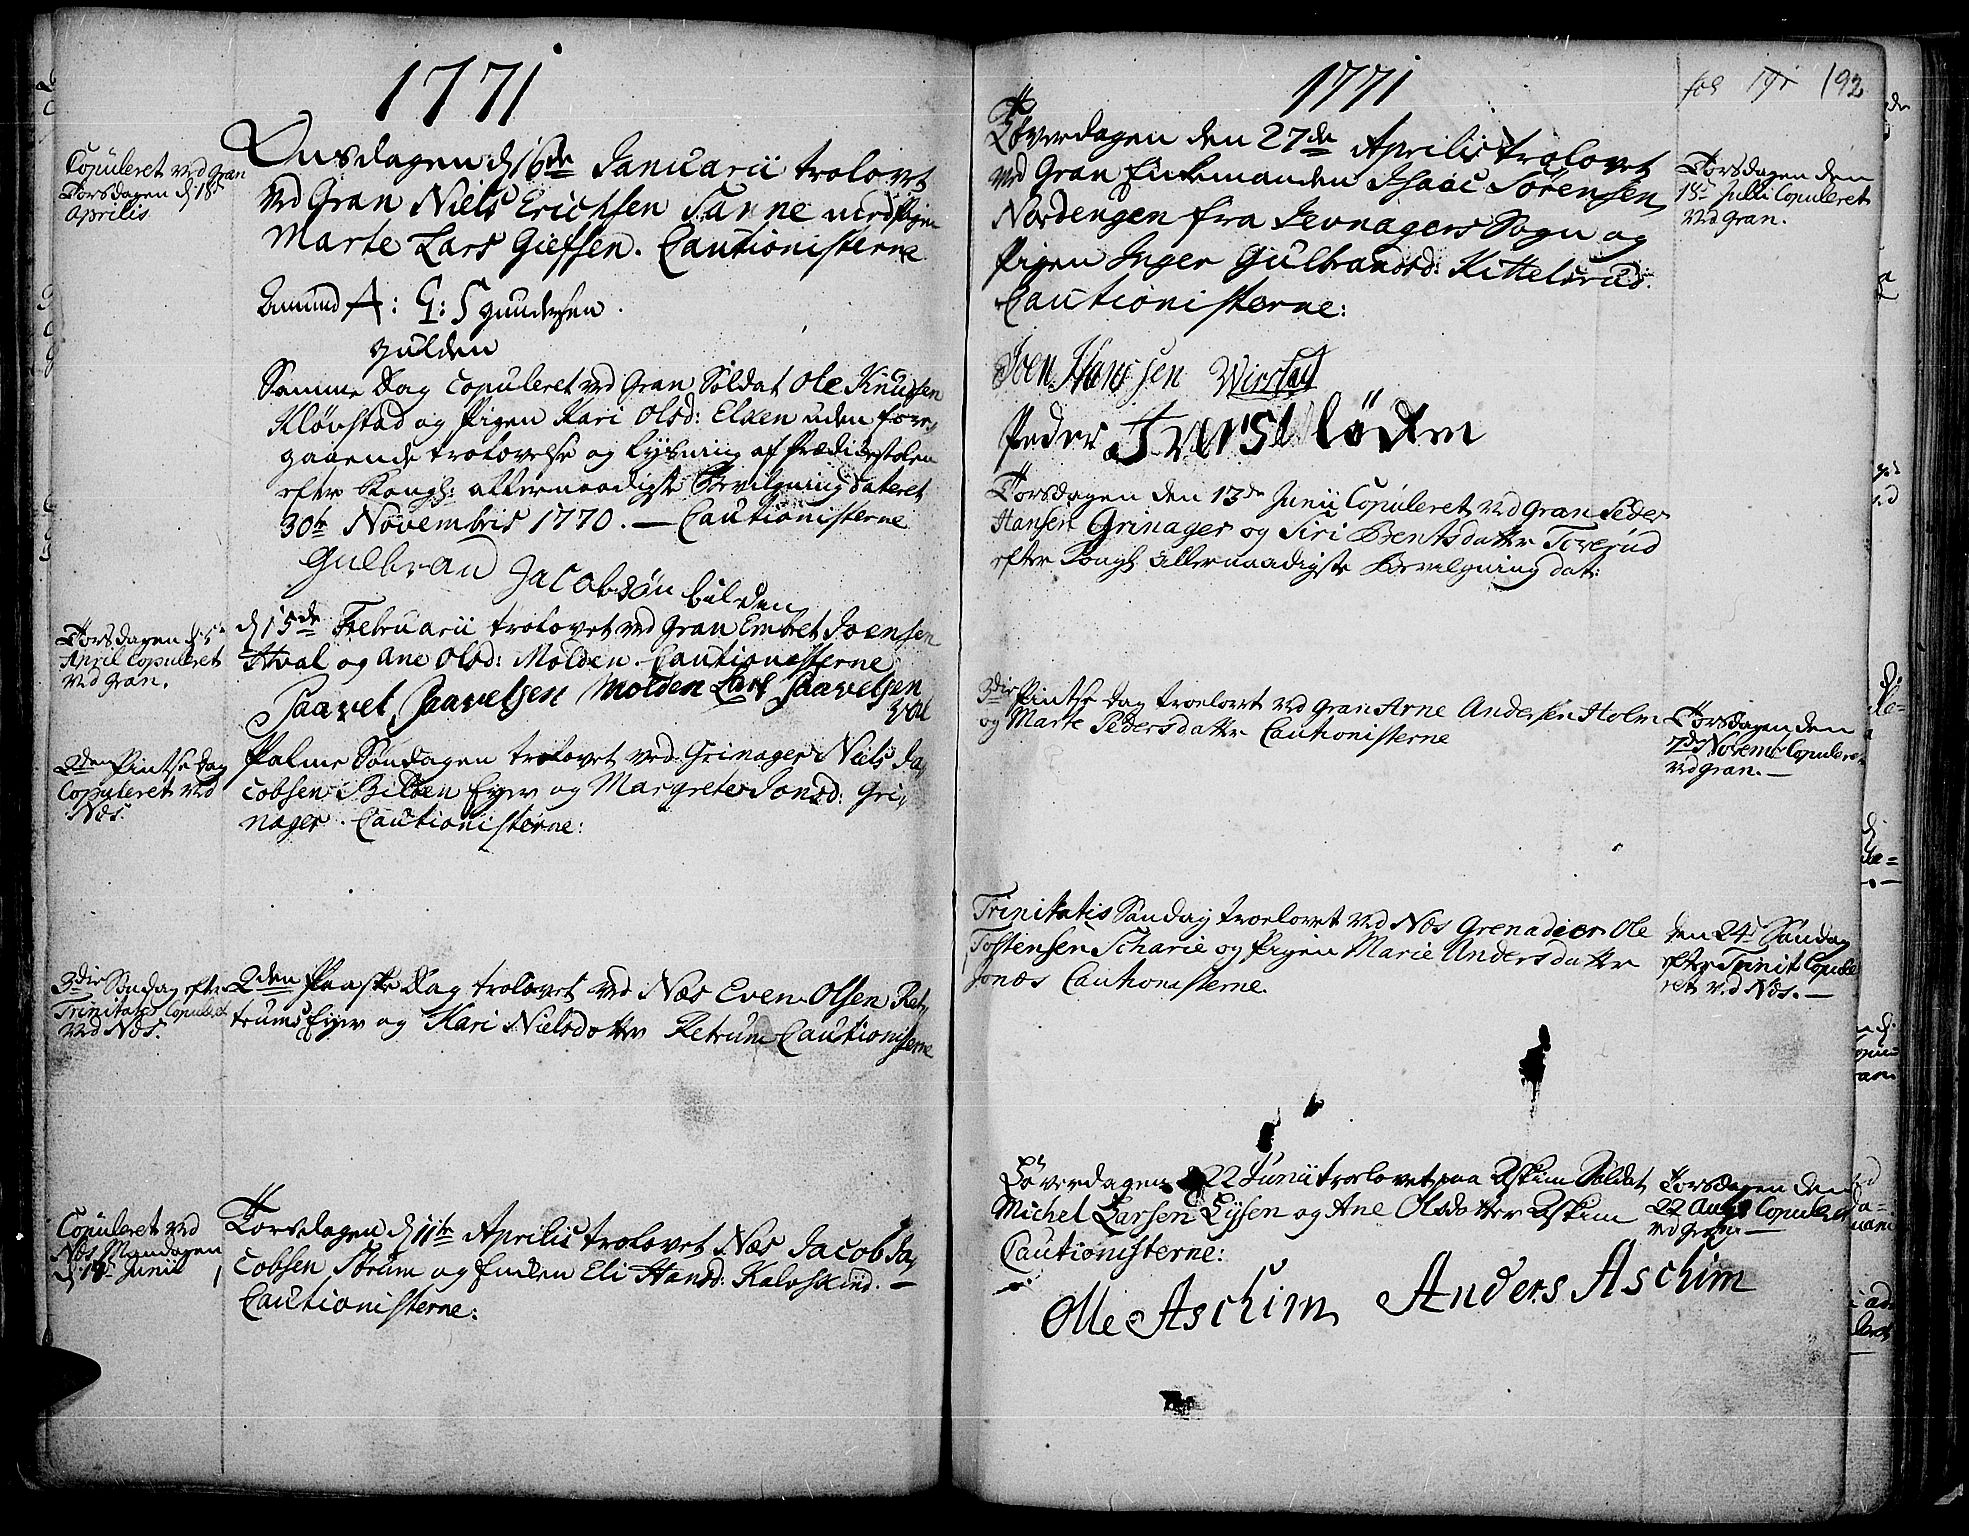 1771
Copuleret ved Gran
Torsdagen d 18
Aprilis
Onsdagen d 16de Januarii trolovet
ved Gran Niels Erichsen Sanne med Pigen
Marte Lars Giefsen. Cautionisterne
Amund A: G: S gundersen.
gulden
Samme Dag copuleret ved Gran Soldat Ole Knudsen
Kløvstad og Pigen Kari Olsd: Elken uden fore,
gaaende trolovelse og lysning af Prædikestolen
efter Kongl: allernaadigste Bevilgning dateret
30te Novembris 1770. — Cautionisterne
Gulbran Jacobsøn bilden
Torsdagen d 5
April Copuleret
ved Gran.
d 15de Februarii trolovet ved Gran Embret Joensen
Hval og Ane Olsd: Molden. Cautionisterne
Paavel Paavelsen Molden Lars Paavelsen
Val
2den Pintse Dag
Copuleret ved
Næs.
Palme Søndagen trolovet ved Grinager Niels Ja,
cobsen Bilden Eyer og Margrete Jonsd: Gri,
nager. Cautionisterne:
3die Søndag efter
Trinitatis Copuleret
ved Næs.
2den Paaske Dag trolovet ved Næs Even Olsen Ret,
trums Eyer og Kari Nielsdatter Retrum Cautionisterne
Copuleret ved
Næs Mandagen
d Junii
Torsdagen d 11te Aprilis trolovet Næs Jacob Ja,
cobsen Strøm og Enken Eli Hansd: Kalvskind. —
Cautionisterne:
1771
fol 191 192
Løverdagen den 27de Aprilis trolovet
ved Gran Enkemanden Isaac Sørensen
Nordengen fra Jevnagers Sogn og
Pigen Inger Gulbransd: Kittelsrud.
Cautionisterne:
Torsdagen den
18 Julli Copuleret
ved Gran.
Joen Hanssen Wirstad
Peder Iverst løken
Torsdagen den 13de Junii Copuleret ved Gran Peder
Hansen Grinager og Siri Berntsdatter Toverud
efter Kongl allernaadigste Bevilgning dat:
3die Pintse Dag troelovet ved Gran Arne Andersen Holm
og Marte Pedersdatter Cautionisterne
Torsdagen den
7de Novemb Copuleret
ved Gran. —
Trinitatis Søndag troelovet ved Næs Grenadeer Ole
Tostensen Scharie og Pigen Marie Andersdatter
Jonæs Cautionisterne.
den 24 Søndag
efter Trinit Copule
ret ved Næs. —
Løverdagen d 22 Junii troelovet paa Askim Soldat
Michel Larsen Lysen og Ane Olsdatter Askim
Cautionisterne:
Torsdagen den
22 Aug Copuleret
ved Gran —
Olle Aschim Anders Aschim